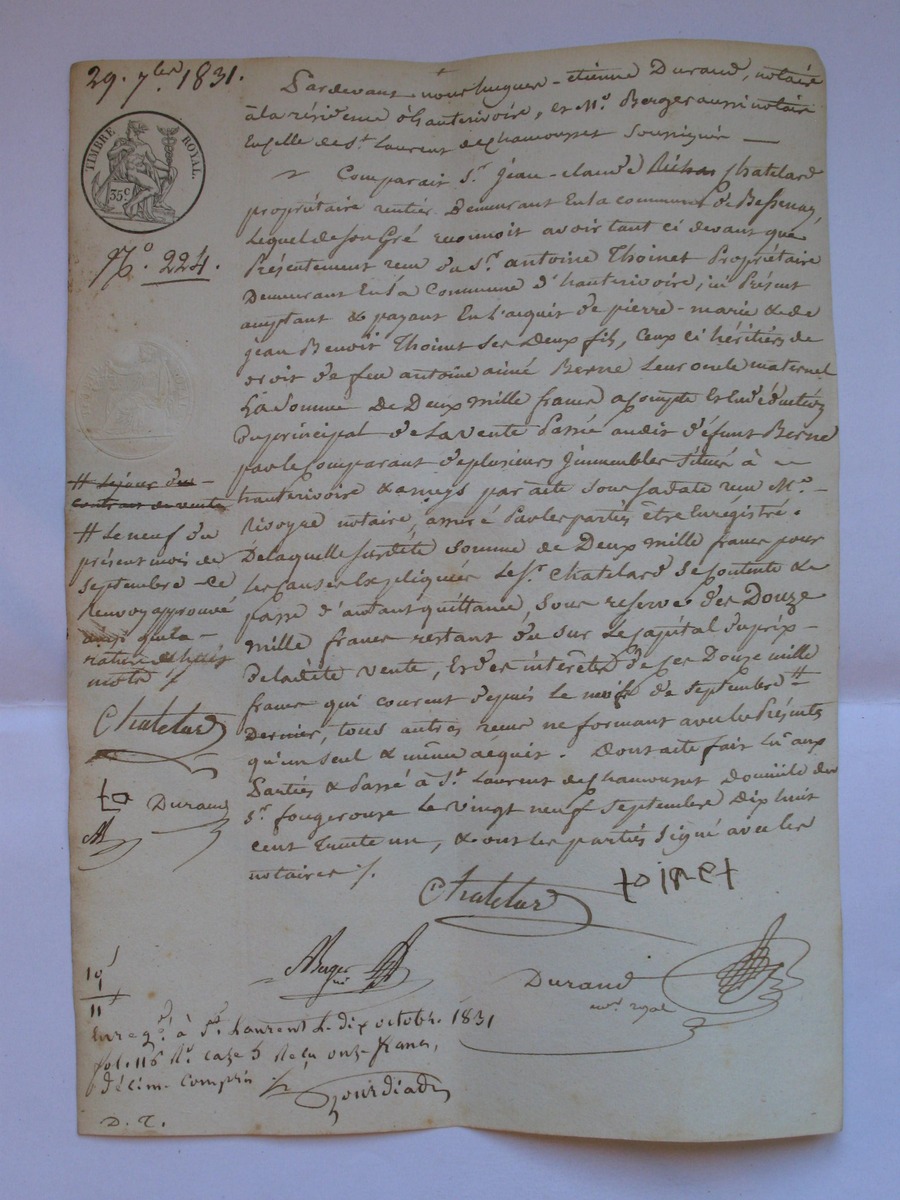 29. 7bre 1831.
TIMBRE ROYAL.
35c
No. 224.
Pardevant nous hugues-étienne Durand, notaire
à la résidence d'hauterivoire, et Me. Berger aussi notaire
En celle de St. Laurent de Chamousset Soussignés —
Comparait Sr. jean-claude Chatelard
propriétaire rentier Demeurant En la commune de Bessenay,
Lequel de son Gré reconnoit avoir tant ci devant que
Présentement reçu du Sr. antoine Thoinet Propriétaire
Demeurant En La Commune d'hauterivoire, ici Présent
acceptant & payant En L'acquit de pierre-marie & de
jean Benoît Thoinet ses Deux fils, Ceux ci héritiers de
droit de feu antoine aimé Berne Leur oncle maternel
La Somme De Deux mille francs a compte Et En déduction
Du principal de La vente Passée audit défunt Berne
par le Comparant de plusieurs immeubles Situés à —
hauterivoire & par acte sous sa date reçu Me. —
notaire, assuré Par les parties être Enrégistré.
De laquelle susdite somme de Deux mille francs pour
Les Causes Expliquées Le Sr. Chatelard se contente &
passe d'autant quittance, Sous reserve des Douze
mille francs restant dû sur Le Capital du prix —
De ladite vente, Et des intérêts de ces Douze mille
francs qui courent depuis le neuf de septembre #
Dernier, tous autres reçus ne formant avec les Présents
qu'un seul & même acquit. Dont acte fait Lû aux
Parties & Passé à St. Laurent de Chamousset Domicile du
Sr. fougerouse Le vingt neuf Septembre Dix huit
cent Trente un, & ont les parties signé avec les
notaires ./.
# Le neuf du
présent mois de
septembre
Renvoy approuvé
ainsi que la —
rature de huit
mots ./.
Chatelard
to Durand
Chatelard
toinet
ABerger
Durand
not. royal
10
1
11
Enregé. à St. Laurent le dix octobre 1831
fol. 116 Ro. Case 5 Reçu onze francs,
décime Compris
Gourdiad
D. T.